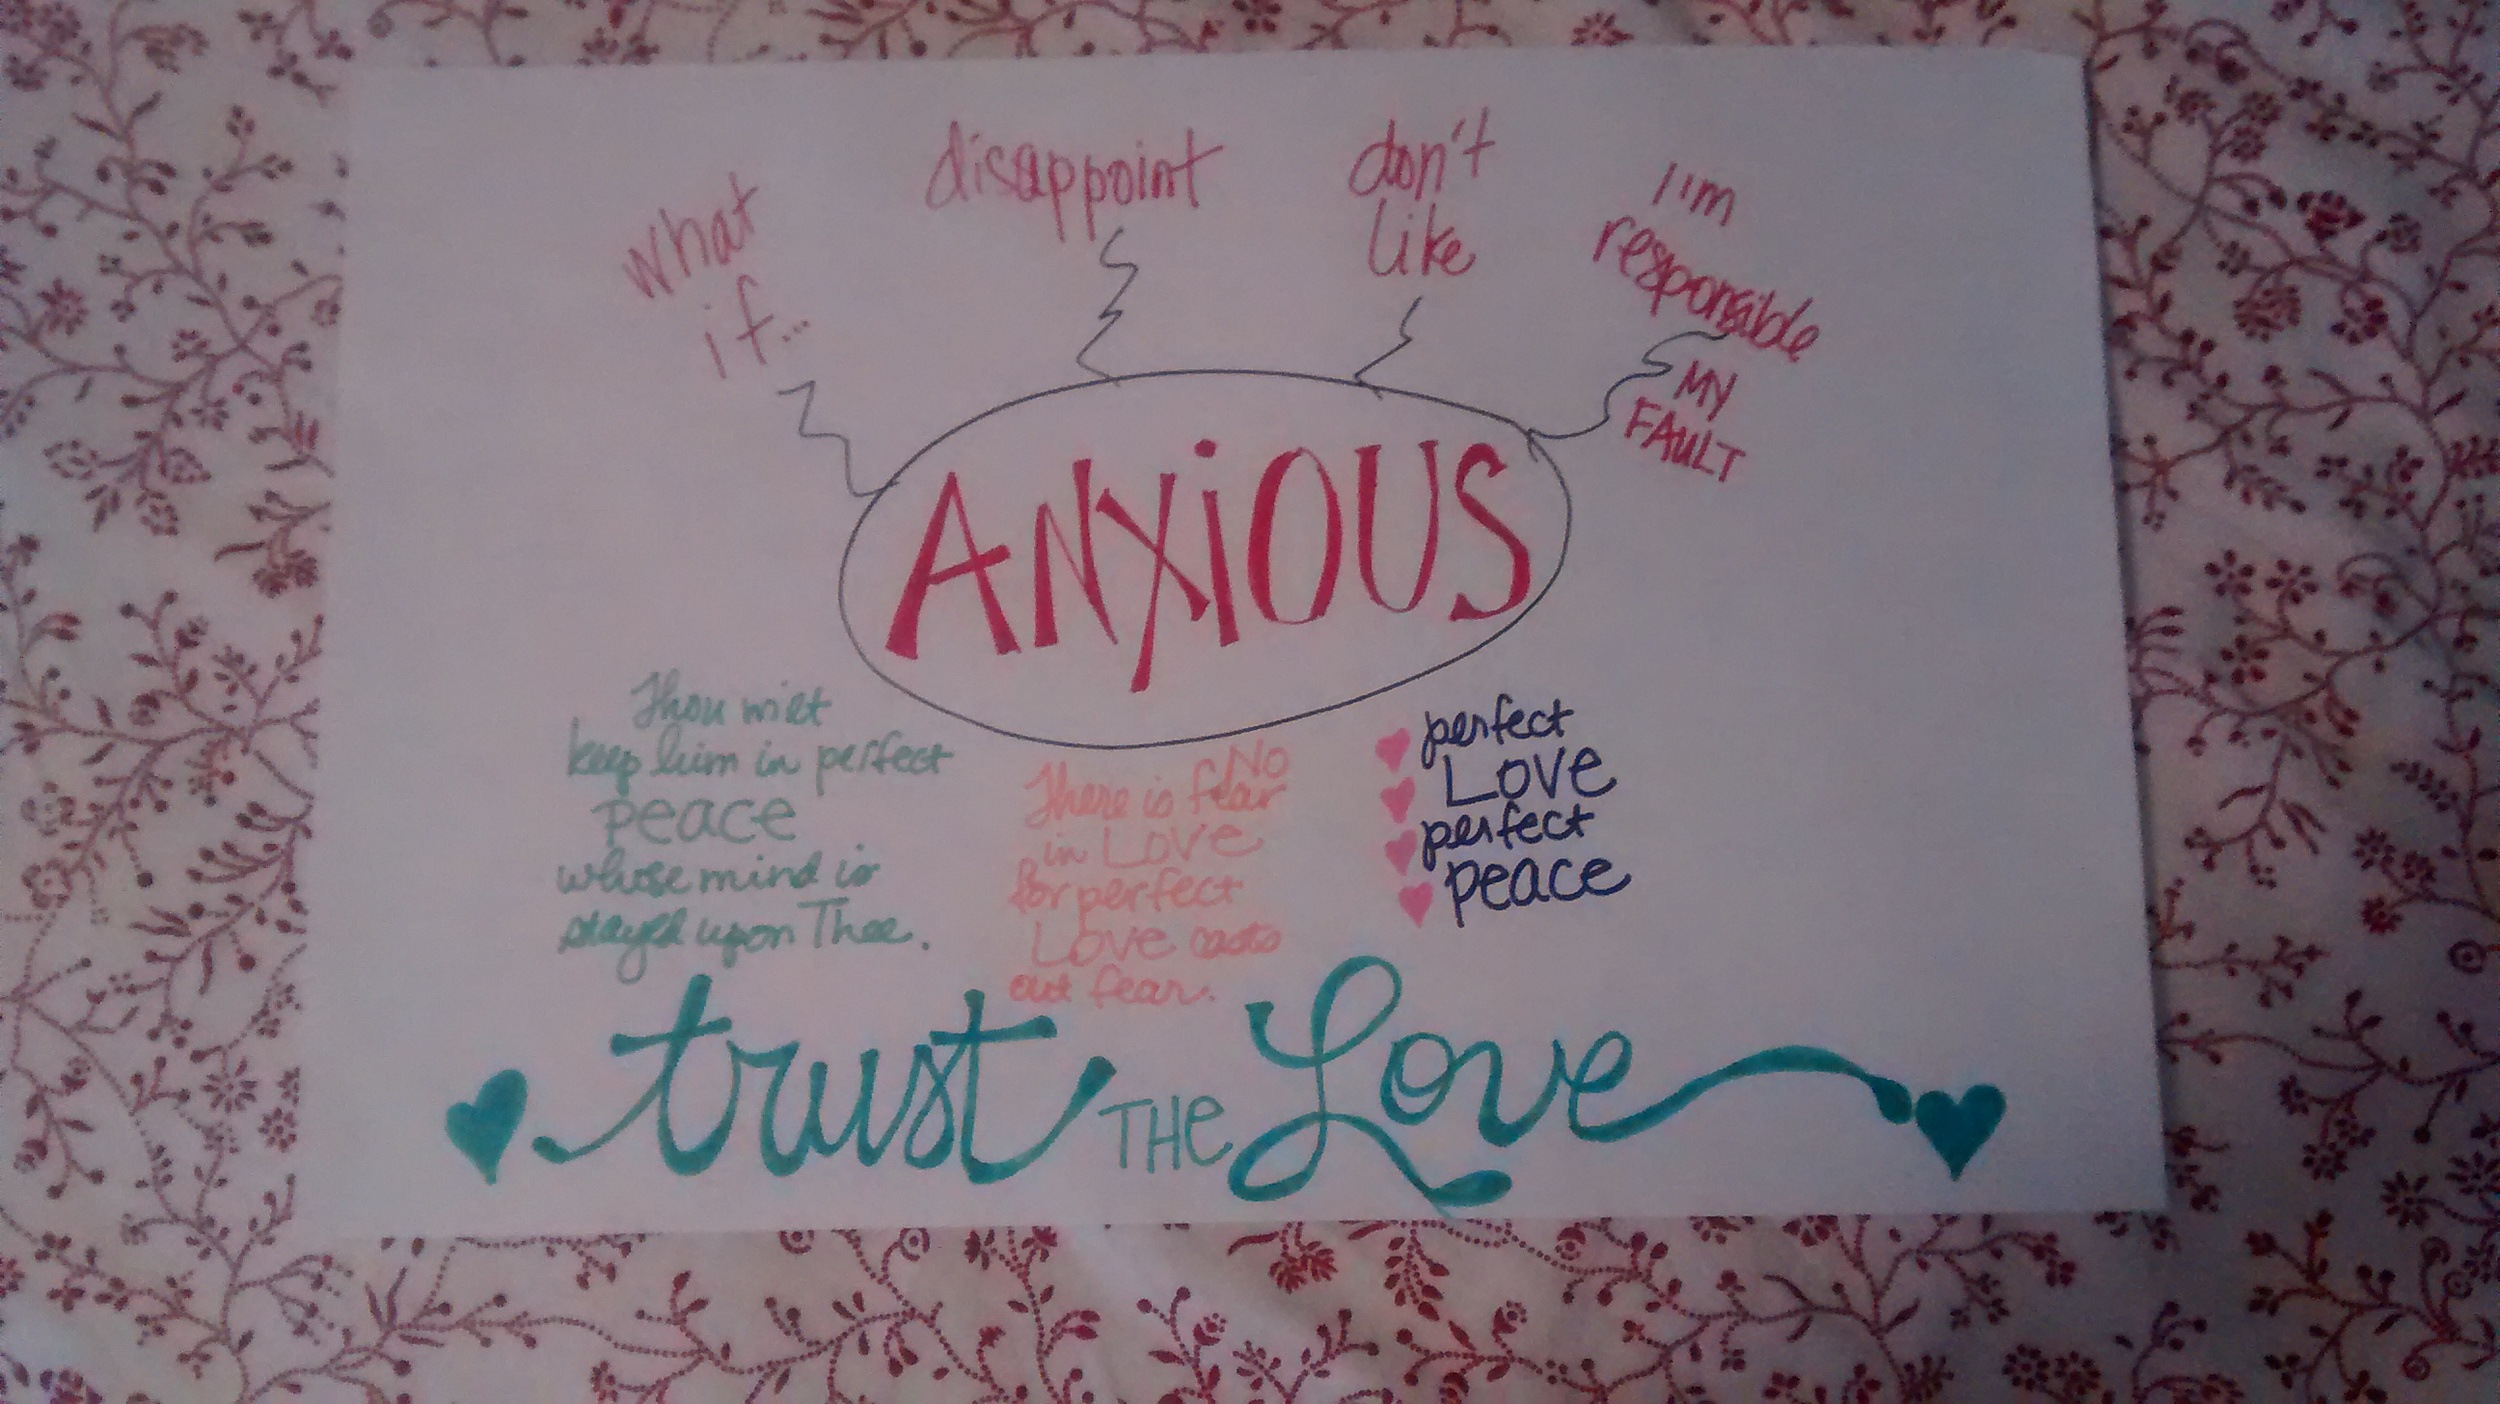 what
if...
disappoint
don't
like
I'm
responsible
MY
FAULT
ANXiOUS
Thou wilt
keep him in perfect
peace
whose mind is
stayed upon Thee.
No
There is fear
in LOVE
for perfect
LOVE casts
out fear.
perfect
LOVE
perfect
peace
trust THE Love